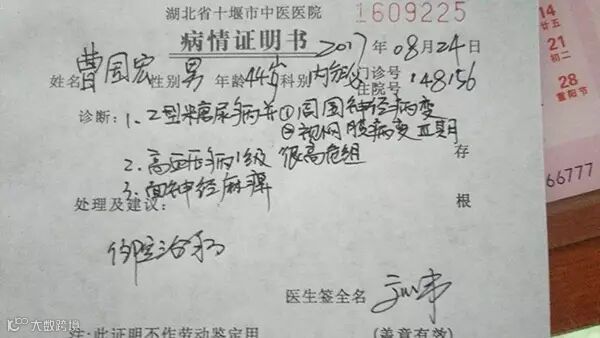 湖北省十堰市中医医院
1609225
病情证明书 2017年08月24日
姓名 曹国宏 性别 男 年龄 44岁 科别 内分泌 门诊号 住院号 148156
诊断：1、2型糖尿病并①周围神经病变
②视网膜病变Ⅲ期
2、高血压病1级 很高危组
3、面神经麻痹
存
处理及建议：
根
住院治疗
医生签全名
注：此证明不作劳动鉴定用 （盖章有效）
14
廿五
21
初二
28
重阳节
66777
大数跨境